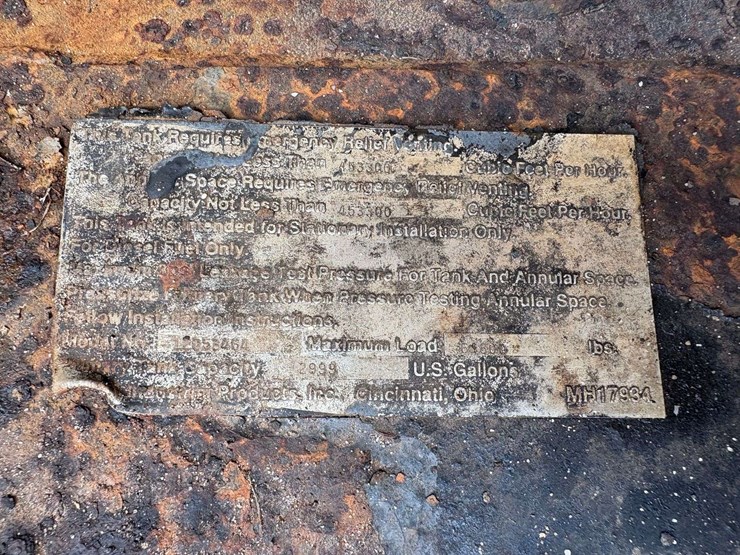 Tank Requires Emergency Relief Venting
Less Than Cubic Feet Per Hour.
The Space Requires Emergency Relief Venting
Capacity Not Less Than 453300 Cubic Feet Per Hour.
Tank is Intended for Stationary Installation Only
For Diesel Fuel Only.
Leakage Test Pressure For Tank And Annular Space.
Tank When Pressure Testing Annular Space.
Follow Installation Instructions.
Model No. Maximum Load lbs.
Capacity 2999 U.S. Gallons
Industrial Products, Inc., Cincinnati, Ohio MH17934